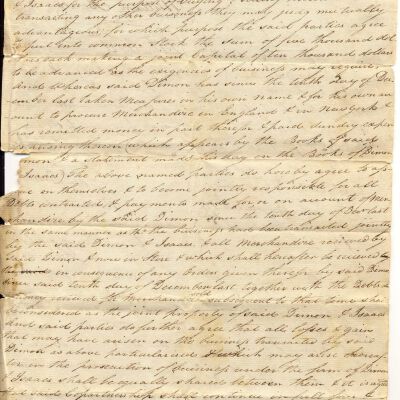 & Isaacs for the purpose of buying & selling
transacting any other business they may deem mutually
advantageous for which purpose the said parties agree
to put into common Stock the sum of five thousand dol
lars each making a joint Capital of ten thousand dollars
to be advanced as the exigencies of business require
And whereas said Dimon has since the tenth day of De
cember last taken measures in his own name & for his own ac
count to procure Merchandize in England & in New York &
has remitted money in part therefor & paid sundry expen
ses arising thereon which appears by the Books of said
Dimon & a statement made this day on the Books of Dimon
& Isaacs) The above named parties do hereby agree to
themselves & to become jointly responsible for all
Debts contracted & payments made for or on account of Mer
chandize by the said Dimon since the tenth day of Decr last
in the same manner as tho the business had been transacted jointly
by the said Dimon & Isaacs & all Merchandize received by
said Dimon & now in Store & which shall hereafter be received
in consequence of any orders given therefor by said Dimon
since said tenth day of December last together with the Debts &
money received for Merchandize sold subsequent to that time shall
be considered as the joint property of said Dimon & Isaacs
And said parties do further agree that all losses & gains
that may have arisen on the business transacted by said
Dimon as above particularized & which may arise hereaf
ter in the prosecution of business under the firm of Dimon
& Isaacs shall be equally shared between them & it is agre
ed said Copartnership shall continue in full force &